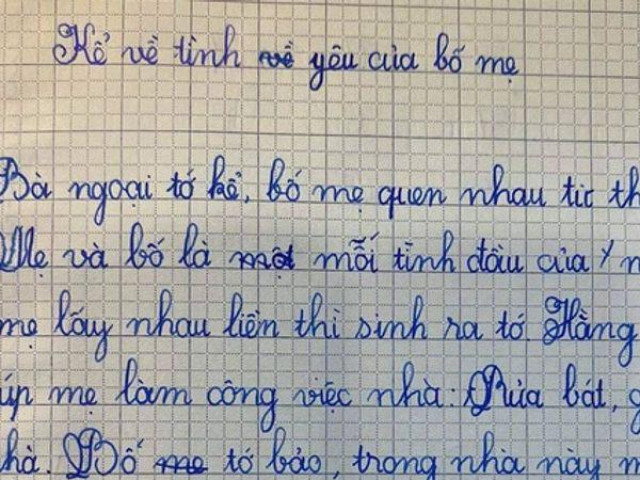 Kể về tình về yêu của bố mẹ
Bà ngoại tớ kể, bố mẹ quen nhau từ th
Mẹ và bố là một mối tình đầu của
mẹ lấy nhau liền thì sinh ra tớ. Hằng
úp mẹ làm công việc nhà: Rửa bát, g
hà. Bố mẹ tớ bảo, trong nhà này m